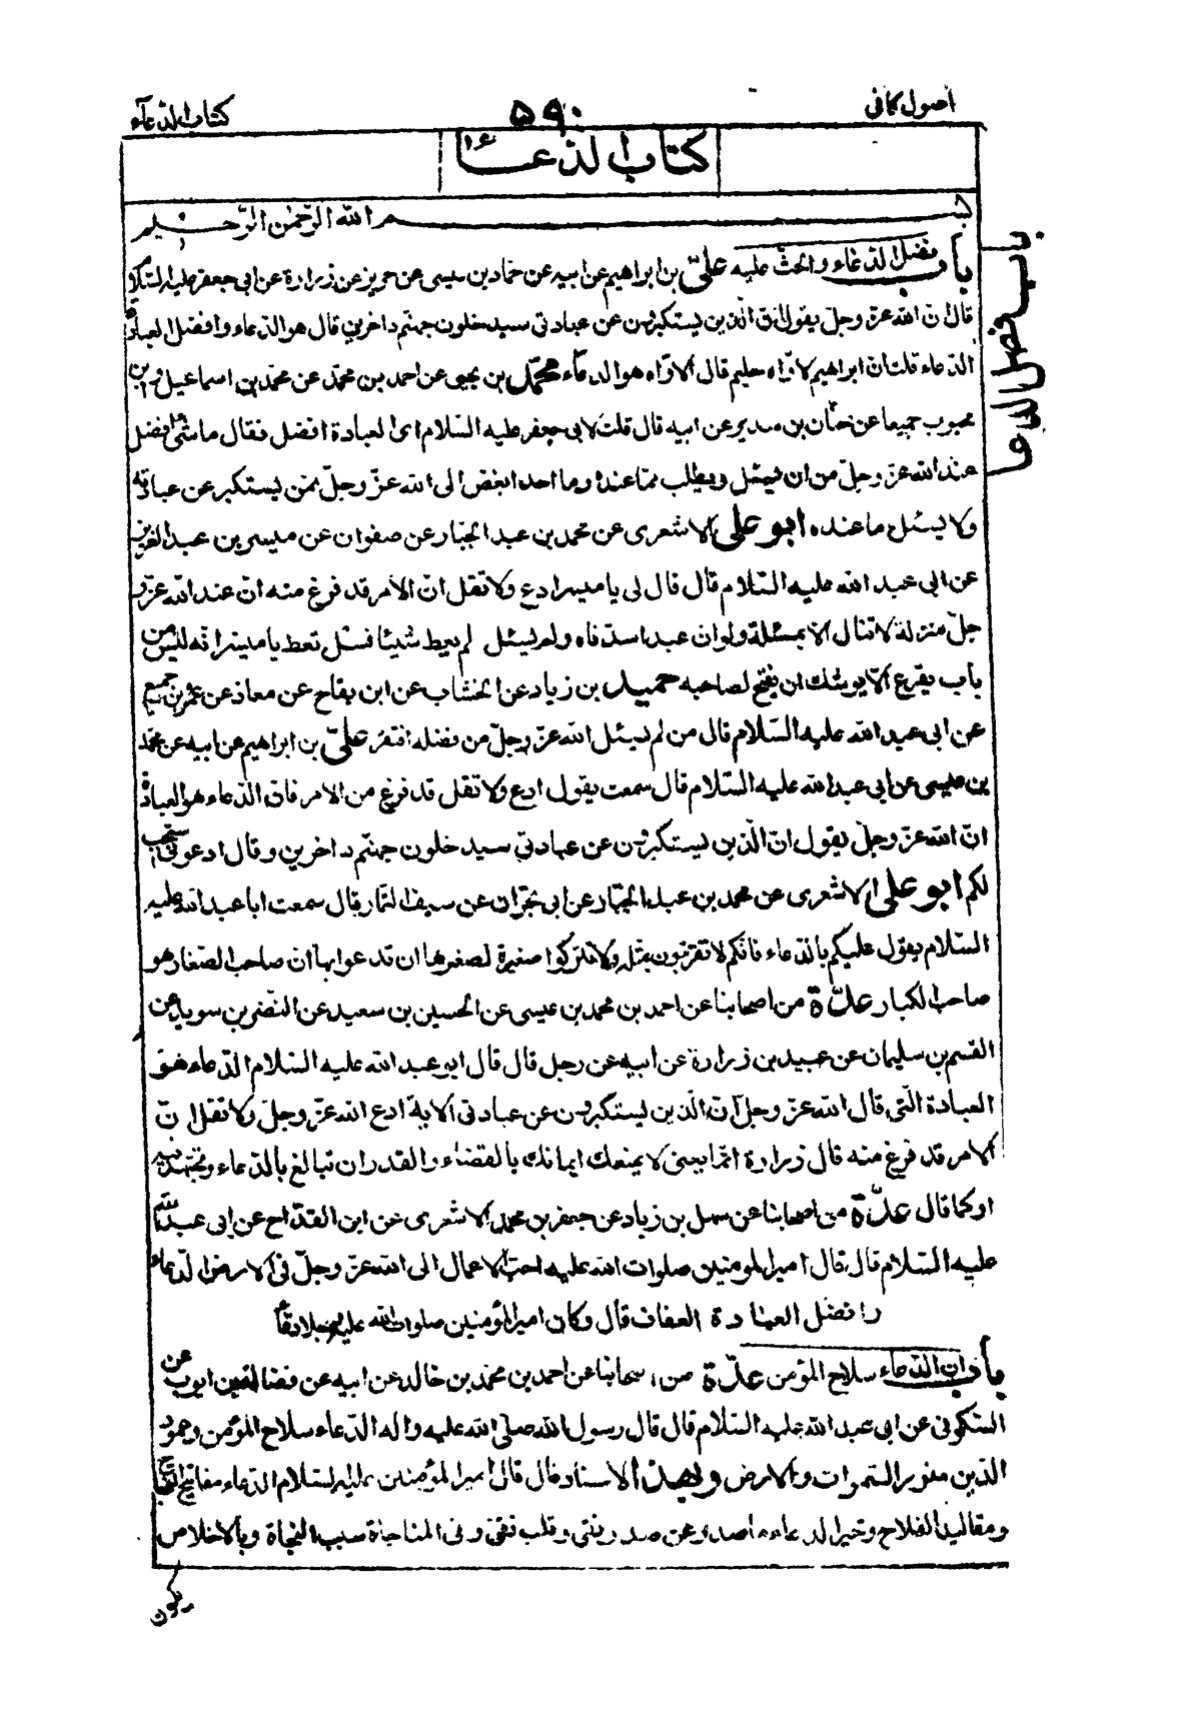 اصول کافی
۵۹۰
کتاب الدعآء
کتاب الدعاء
بسم الله الرّحمن الرّحیم
باب فضل الدعاء
باب فضل الدّعاء والحثّ علیه علیّ بن ابراهیم عن ابیه عن حمّاد بن عیسی عن حریز عن زرارة عن ابی جعفر علیه السّلام
قال ان الله عزّ وجلّ یقول انّ الّذین یستکبرون عن عبادتی سیدخلون جهنّم داخرین قال هو الدّعاء وافضل العبادة
الدّعاء قلت ان ابراهیم لاوّاه حلیم قال الاوّاه هو الدعّاء محمّد بن یحیی عن احمد بن محمّد عن محمّد بن اسماعیل وابن
محبوب جمیعا عن حنّان بن سدیر عن ابیه قال قلت لابی جعفر علیه السّلام ای العبادة افضل فقال ما شئ افضل
عند الله عزّ وجلّ من ان یسئل ویطلب ممّا عنده وما احد ابغض الی الله عزّ وجلّ ممّن یستکبر عن عبادته
ولا یسئل ما عنده ابو علی الاشعری عن محمد بن عبد الجبّار عن صفوان عن میسر بن عبد العزیز
عن ابی عبد الله علیه السّلام قال قال لی یا میسر ادع ولا تقل انّ الامر قد فرغ منه انّ عند الله عزّ و
جلّ منزلة لا تنال الّا بمسئلة ولو انّ عبدا سدّ فاه ولم یسئل لم یعط شیئا فسئل تعط یا میسر انّه لیس من
باب یقرع الّا یوشك ان یفتح لصاحبه حمید بن زیاد عن الخشّاب عن ابن بقاح عن معاذ عن عمرو بن جمیع
عن ابی عبد الله علیه السّلام قال من لم یسئل الله عزّ وجلّ من فضله افتقر علیّ بن ابراهیم عن ابیه عن حمّاد
بن عیسی عن ابی عبد الله علیه السّلام قال سمعت یقول ادع ولا تقل قد فرغ من الامر فانّ الدّعاء هو العبادة
انّ الله عزّ وجلّ یقول انّ الّذین یستکبرون عن عبادتی سیدخلون جهنّم داخرین وقال ادعونی استجب
لکم ابو علی الاشعری عن محمد بن عبد الجبّار عن ابی نجران عن سیف التمّار قال سمعت ابا عبد الله علیه
السّلام یقول علیکم بالدّعاء فانّکم لا تقربون بمثله ولا تترکوا صغیرة لصغرها ان تدعوا بها انّ صاحب الصّغار هو
صاحب الکبار عدّة من اصحابنا عن احمد بن محمد بن عیسی عن الحسین بن سعید عن النّضر بن سوید عن
القسم بن سلیمان عن عبید بن زرارة عن ابیه عن رجل قال قال ابو عبد الله علیه السّلام الدّعاء هو
العبادة الّتی قال الله عزّ وجلّ انّ الّذین یستکبرون عن عبادتی الایة ادع الله عزّ وجلّ ولا تقل انّ
الامر قد فرغ منه قال زرارة انّما یعنی لا یمنعك ایمانك بالقضاء والقدر ان تبالغ بالدّعاء وتجتهد فیه
او کما قال عدّة من اصحابنا عن سهل بن زیاد عن جعفر بن محمد الاشعری عن ابن القدّاح عن ابی عبد الله
علیه السّلام قال قال امیر المومنین صلوات الله علیه احبّ الاعمال الی الله عزّ وجلّ فی الارض الدّعاء
وافضل العبادة العفاف قال وکان امیر المؤمنین صلوات الله علیه رجلا دعّاءً
باب انّ الدّعاء سلاح المؤمن عدّة من اصحابنا عن احمد بن محمّد بن خالد عن ابیه عن فضالة بن ایوب عن
السّکونی عن ابی عبد الله علیه السّلام قال قال رسول الله صلی الله علیه واله الدّعاء سلاح المؤمن وعمود
الدّین ونور السّموات والارض وبهذا الاسناد قال قال امیر المؤمنین علیه السّلام الدّعاء مفاتیح النّجاح
ومقالید الفلاح وخیر الدعاء ما صدر عن صدر نقی وقلب تقی وفی المناجاة سبب النّجاة وبالاخلاص
یکون